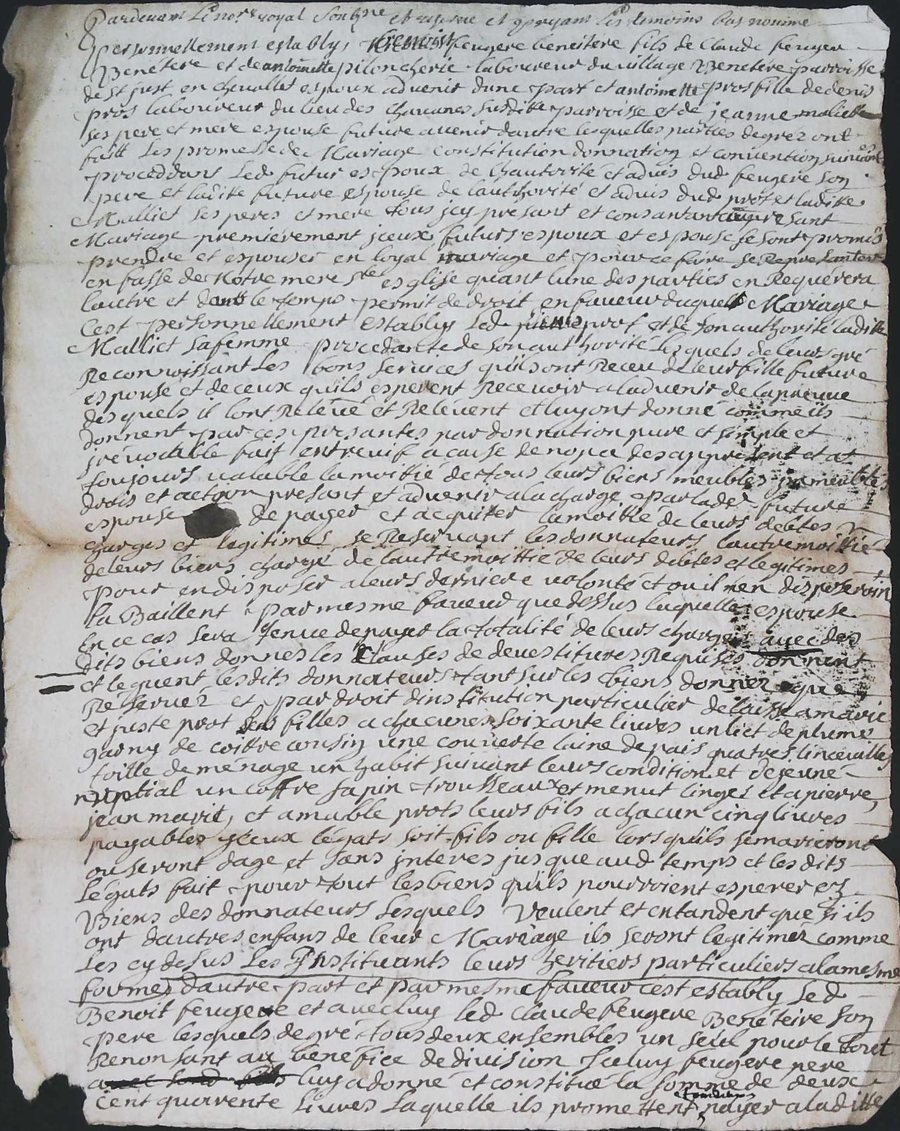 Pardevant le not^re royal soubz^ne et en presance des temoins bas nommé
personnellement estably, benoist feugere benetere fils de Claude feuger
Benetere et de antoinette piloncherie laboureur du village Benetere parroisse
de S^t just en chevallet espoux advenir dune part et antoinette prost fille de denis
prost laboureur du lieu des chavanes susditte parroisse et de jeanne malliet
ses pere et mere espouse future avenir dautre lesquelles parties de grez ont
fait les promesse de Mariage constitution donnation et convention suivant
procedant led futur espoux de lhautorité et advis dud feugere son
pere et ladite future espouse de lauthorité et advis dud prot et ladite
Malliet ses peres et mere tous icy presant et consantant au presant
Mariage premièrement jceux futurs espoux et espouse se sont promis
prendre et espouser en loyal mariage et pour ce faire se Representer
en fasse de Notre mere s^te esglise quant lune des parties en Requerera
lautre et dans le temps permit de droit en faveur duquel Mariage
cest personnellement estably led denis prot et de son authorité ladite
Malliet sa femme procedante de son authorité lesquels de leurs gré
Reconnoissant les bons services quils ont Receu de leur fille future
espouse et de ceux quils esperent Recevoir a ladvenir de la preuve
desquels il lont Relevé et Relevent et luy ont donné comme ils
donnent par ces presantes par donnation pure et simple et
irrevocable fait entrevif a cause de nopce des apprésent et at
toujours valable la moitié de tous leurs biens meubles jmeubles
drois et action presant et advenir a la charge par lade future
espouse de payer et acquiter la moitié de leurs debtes
charges et legitimes se Reservant les donnateurs lautre moittié
de leurs biens chargé de lautre moittié de leurs debtes et legitimes
pour en disposer a leurs derniere volonté et ou il nen disposeroint
la Baillent par mesme faveur que dessus laquelle espouse
En ce cas sera tenue de payer la totalité de leurs charges avec des
dits biens donnés les Clauses de devestitures Requises donnant
et leguent lesdits donnateurs tant sur les biens donnez que
Reservez et par droit dinstitution particulier de laisse a marie
et juste prot leurs filles a chacunes soixante livres un lict de plume
garny de coitre cousin une couverte laine de pais quatres linceuille
toille de ménage un habit suivant leurs condition et dejeune
nuptial un coffre sapin trousseaux et menut linges et a pierre
jean marit, et amable prots leurs fils a chacun cinq livres
payables yceux légats soit fils ou fille lorsquils se marieront
ou seront dage et sans interes jusque aud temps et les dits
Légats fait pour tout les biens quils pourroient esperer ez
Biens des donnateurs lesquels veulent et entandent que si ils
ont dautres enfans de leur Mariage ils seront legitimez comme
les cy desus les Instituants leurs heritiers particuliers a la mesme
formes dautre part et par mesme faveur cest estably led
Benoit feugere et avec luy led claude feugere Benéteire son
pere lesquels de gré tous deux ensembles un seul pour le tout
Renonsant au bénéfice de division Iceluy feugere pere
luy a donné et constitué la somme de deux
cent quarrente Livres laquelle ils promettent payer a laditte